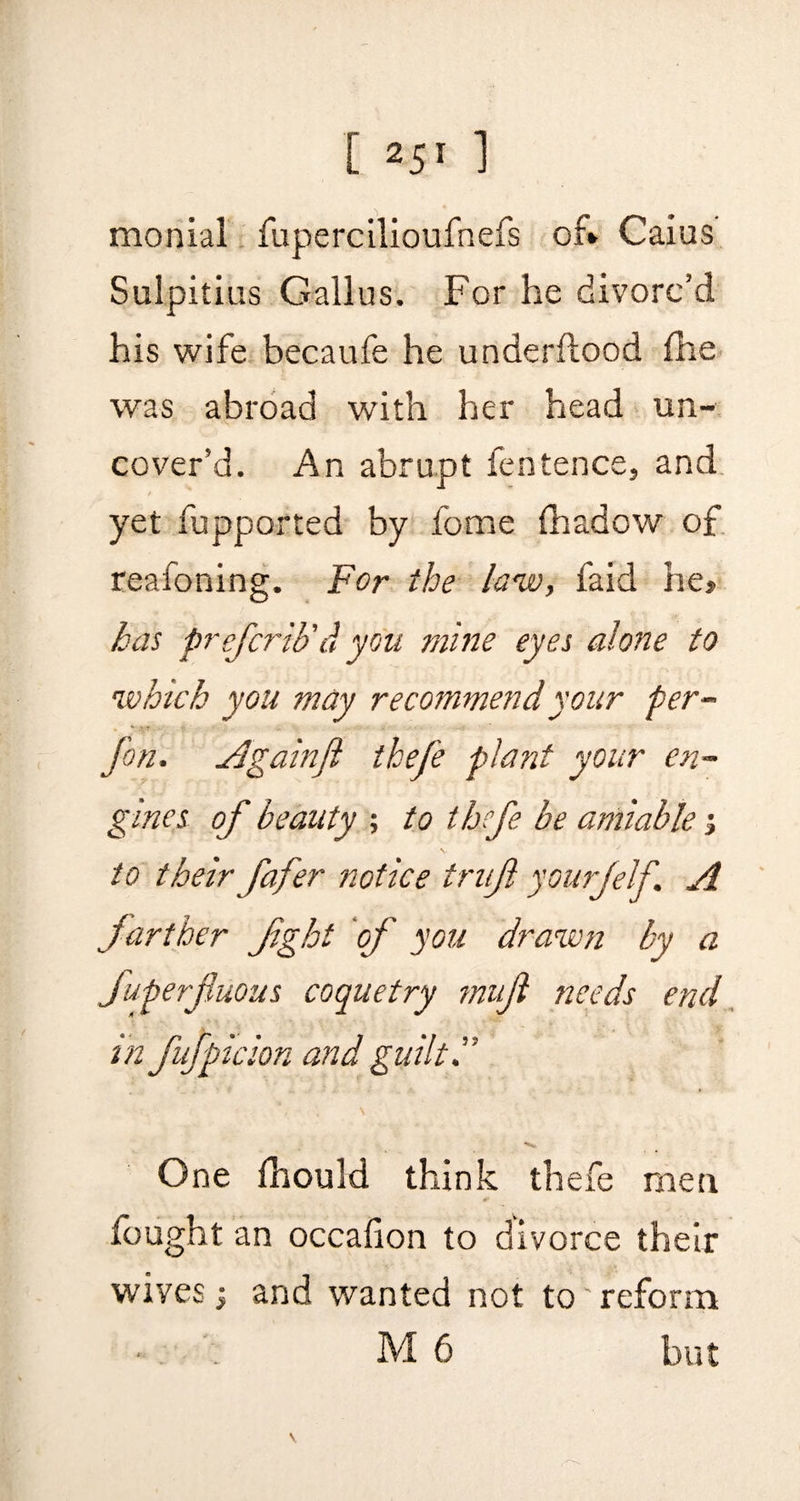 [ 251 ]
monial ſuperciliouſneſs of Caius
Sulpitius Gallus. For he divorc'd
his wife becauſe he underſtood ſhe
was abroad with her head un-
cover'd. An abrupt ſentence, and
yet ſupported by ſome ſhadow of
reaſoning. For the law, ſaid he,
has preſcrib'd you mine eyes alone to
which you may recommend your per-
ſon. Againſt theſe plant your en-
gines of beauty ; to theſe be amiable ;
to their ſafer notice truſt yourſelf. A
farther ſight of you drawn by a
ſuperfluous coquetry muſt needs end
in ſuſpicion and guilt."
One ſhould think theſe men
ſought an occaſion to divorce their
wives ; and wanted not to reform
M 6 but